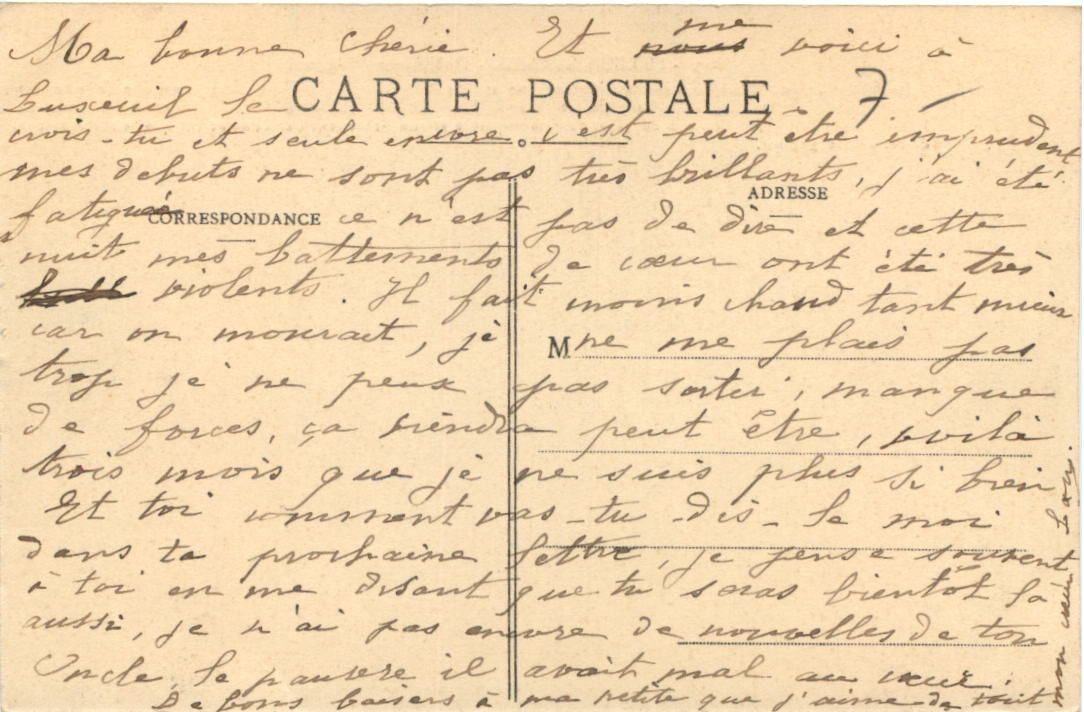 Ma bonne Chérie. Et me voici à
CARTE POSTALE
7
Luxeuil le
crois-tu et seule encore c'est peut être imprudent
mes debuts ne sont pas très brillants, j'ai été
ADRESSE
CORRESPONDANCE
fatiguée ce n'est pas de dire et cette
nuit mes battements de cœur ont été très
violents. Il fait moins chaud tant mieux
car on mourait, je ne me plais pas
M
trop je ne peux pas sortir, manque
de forces, ça viendra peut être, voilà
trois mois que je ne suis plus si bien
Et toi comment vas-tu dis-le moi
dans ta prochaine lettre, je pense souvent
à toi en me disant que tu seras bientôt la
aussi, je n'ai pas encore de nouvelles de ton
Oncle, le pauvre il avait mal au cœur.
De bons baisers à ma petite que j'aime de tout
mon cœur